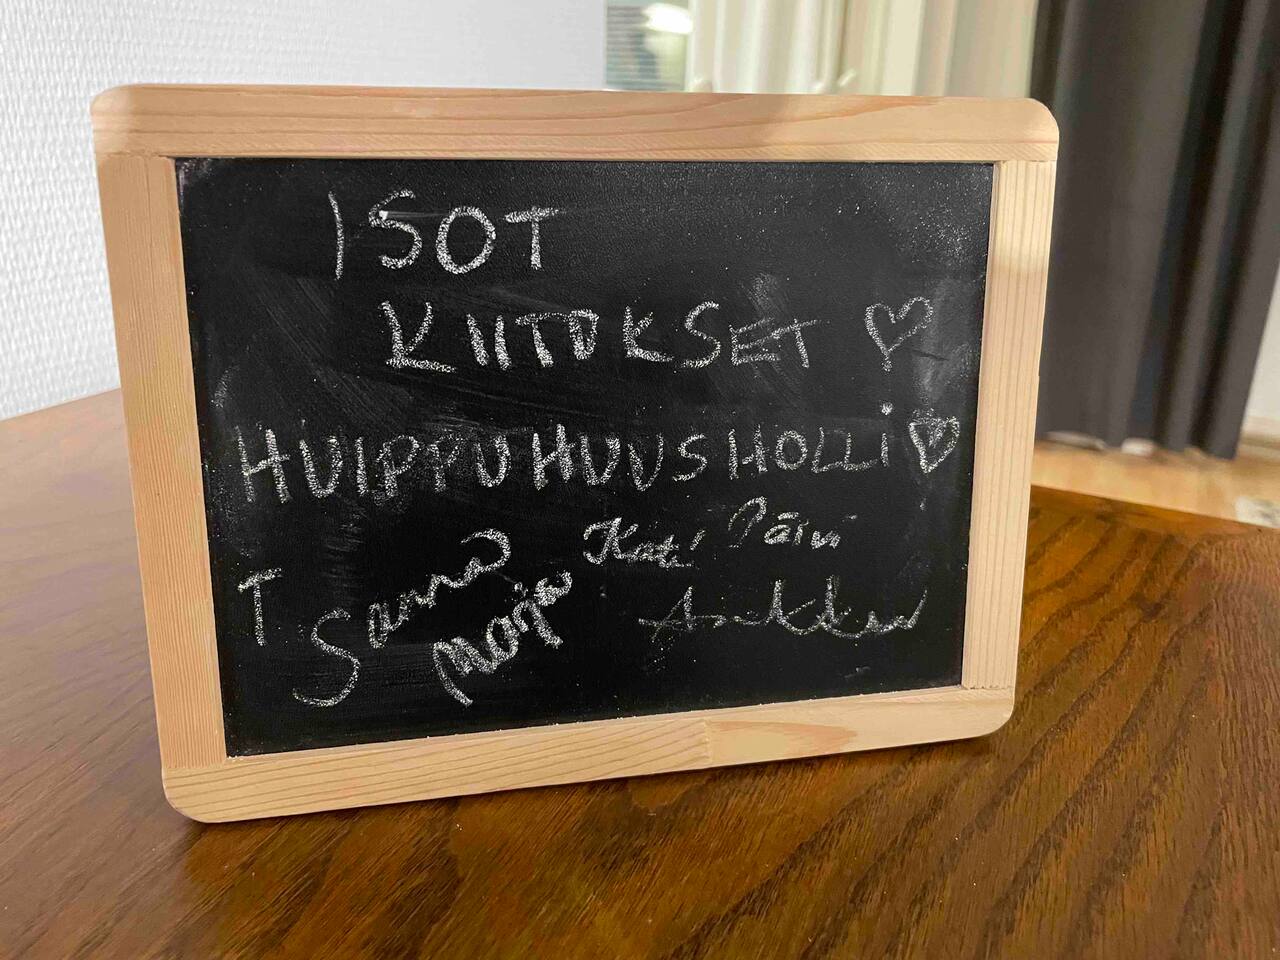 ISOT
KIITOKSET ♡
HUIPPU HUUSHOLLi ♡
T Sanna Marja Kati Päivi